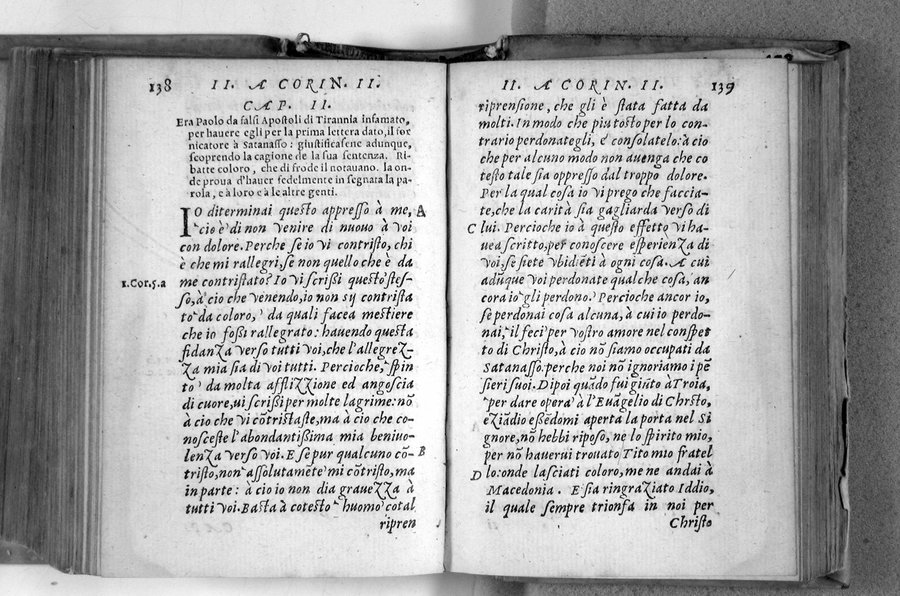 138 II. A CORIN. II.
CAP. II.
Era Paolo da falſi Apoſtoli di Tirannia infamato,
per hauere egli per la prima lettera dato, il for
nicatore à Satanaſſo: giuſtificaſene adunque,
ſcoprendo la cagione de la ſua ſentenza. Ri-
batte coloro, che di frode il notauano. la on-
de proua d'hauer fedelmente in ſegnata la pa-
rola, e à loro e à le altre genti.
IO diterminai queſto appreſſo à me, A
cio è di non venire di nuouo à voi
con dolore. Perche ſe io vi contriſto, chi
è che mi rallegri, ſe non quello che è da
1.Cor.5.a me contriſtato? Io vi ſcriſsi queſto ſteſ-
ſo, à cio che venendo, io non sy contriſta
to da coloro, da quali facea meſtiere
che io foſsi rallegrato: hauendo queſta
fidanza verſo tutti voi, che l'allegrez-
za mia ſia di voi tutti. Percioche, ſpin
to da molta afflizzione ed angoſcia
di cuore, ui ſcriſsi per molte lagrime: nō
à cio che vi cōtriſtaſte, ma à cio che co-
noſceſte l'abondantiſsima mia beniuo-
lenza verſo voi. E ſe pur qualcuno cō- B
triſto, non aſſolutamēte mi cōtriſto, ma
in parte: à cio io non dia grauezza à
tutti voi. Baſta à coteſto huomo cotal
ripren
II. A CORIN. II. 139
riprenſione, che gli è ſtata fatta da
molti. In modo che piu toſto per lo con-
trario perdonategli, e conſolatelo: à cio
che per alcuno modo non auenga che co
teſto tale ſia oppreſſo dal troppo dolore.
Per la qual coſa io vi prego che faccia-
te, che la carità ſia gagliarda verſo di
C lui. Percioche io à queſto effetto vi ha-
uea ſcritto, per conoſcere eſperienza di
voi, ſe ſiete vbidiēti à ogni coſa. A cui
adūque voi perdonate qual che coſa, an
cora io gli perdono. Percioche ancor io,
ſe perdonai coſa alcuna, à cui io perdo-
nai, il feci per voſtro amore nel conſpet
to di Chriſto, à cio nō ſiamo occupati da
Satanaſſo. perche noi nō ignoriamo i pē
ſieri ſuoi. Dipoi quādo fui giūto à Troia,
per dare opera à l'Euāgelio di Chrſto,
eziādio eſſēdomi aperta la porta nel Si
gnore, nō hebbi ripoſo, ne lo ſpirito mio,
per nō hauerui trouato Tito mio fratel
D lo: onde laſciati coloro, me ne andai à
Macedonia. E ſia ringraziato Iddio,
il quale ſempre trionfa in noi per
Chriſto